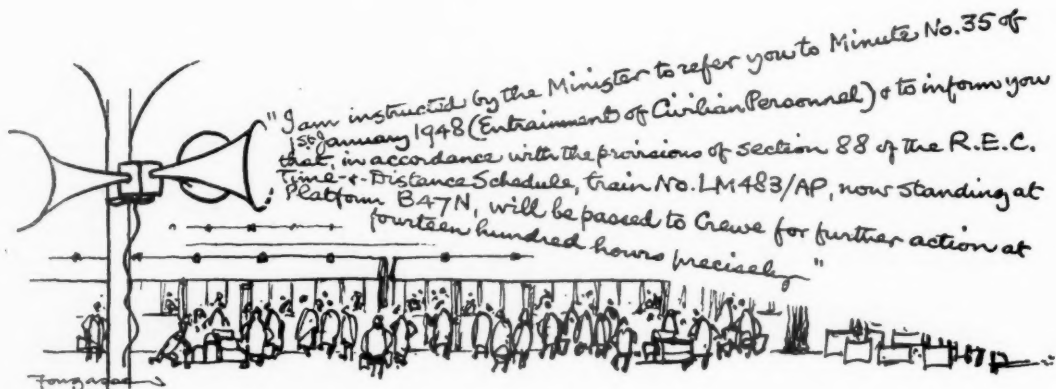 "I am instructed by the Minister to refer you to Minute No.35 of
1st January 1948 (Entrainment of Civilian Personnel) & to inform you
that, in accordance with the provisions of section 88 of the R.E.C.
Time-&-Distance Schedule, train No. LM483/AP, now standing at
Platform B47N, will be passed to Crewe for further action at
fourteen hundred hours precisely"
Fougasse